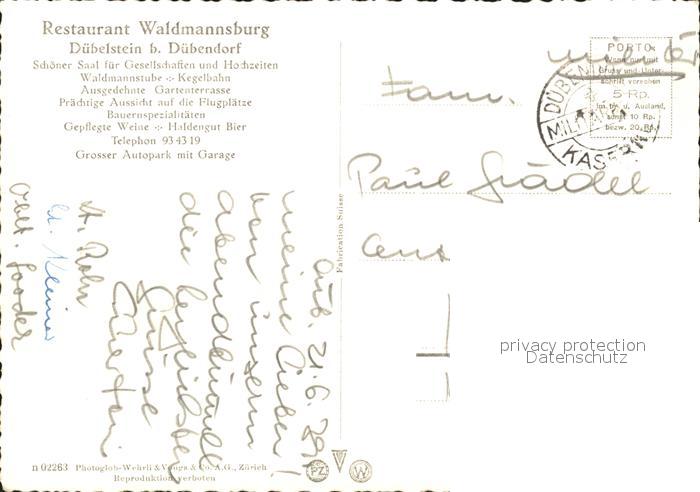 Restaurant Waldmannsburg
Dübelstein b. Dübendorf
Schöner Saal für Gesellschaften und Hochzeiten
Waldmannstube ÷ Kegelbahn
Ausgedehnte Gartenterrasse
Prächtige Aussicht auf die Flugplätze
Bauernspezialitäten
Gepflegte Weine ÷ Haldengut Bier
Telephon 93 43 19
Grosser Autopark mit Garage
militär
PORTO
Wenn nur mit
Gruss und Unter-
schrift versehen
5 Rp.
Im In- u. Ausland,
sonst 10 Rp.
bezw. 20 Rp.
DÜBEN
MILITÄR
KASERNE
Fam.
Paul Grädel
21.6.
meine Lieben!
von unserm
die herzlichsten
Grüsse
Fabrication Suisse
privacy protection
Datenschutz
n 02263 Photoglob-Wehrli & Vouga & Co. A.G., Zürich
Reproduktion verboten
PZ
V
W